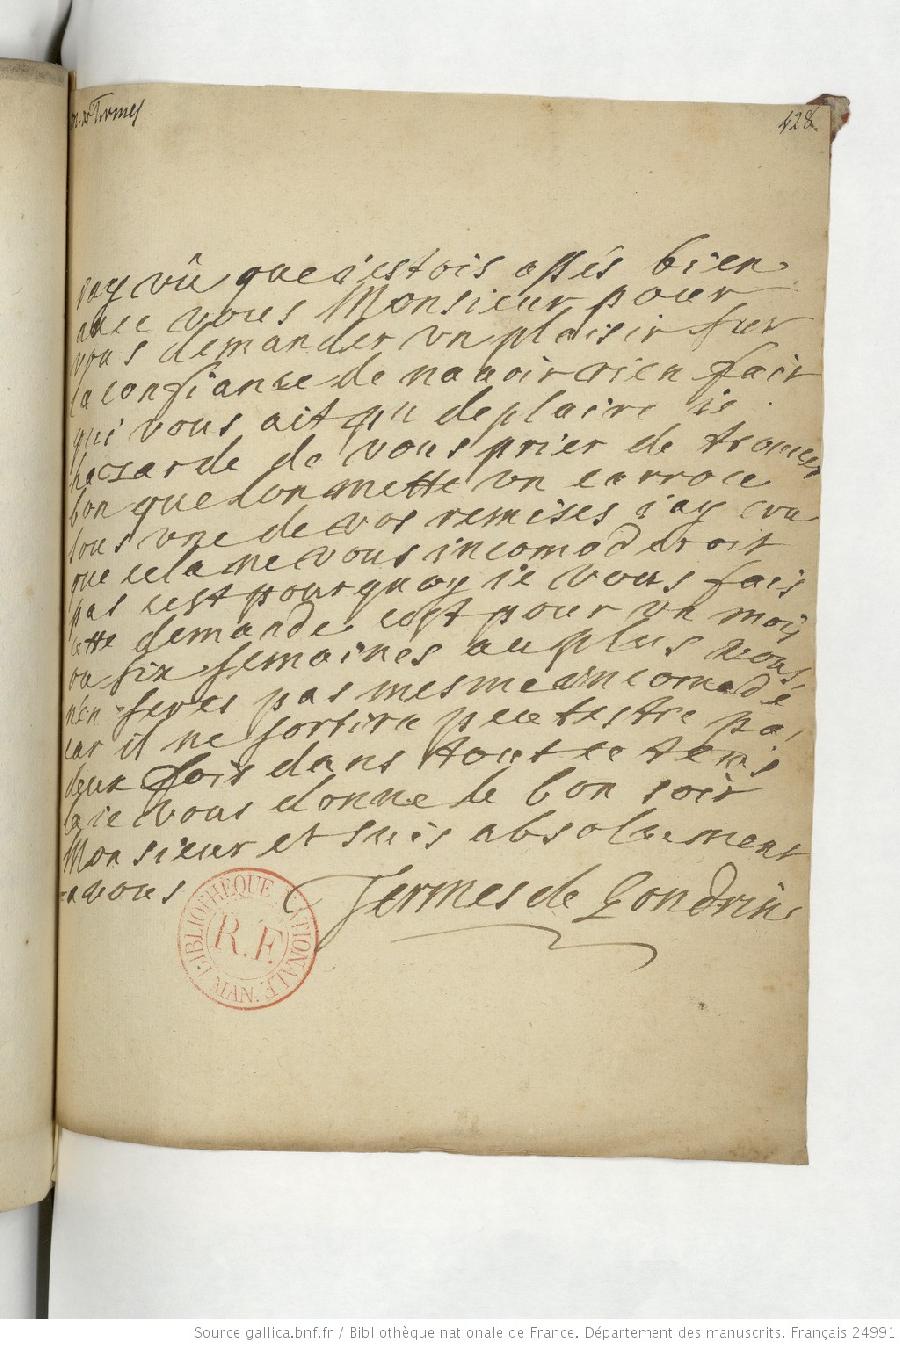 de Termes
428
jay vû que j'estois assés bien
avec vous Monsieur pour
vous demander un plaisir sur
la confiance de navoir rien fait
qui vous ait pu deplaire je
hazarde de vous prier de trouver
bon que lon mette un carroce
sous une de vos remises j'ay cru
que cela ne vous incomoderoit
pas cest pourquoy je vous fais
cette demande cest pour un mois
ou six semaines au plus vous
nen seres pas mesme incomodé
car il ne sortira peutestre pas
deux fois dans tout ce tems
la je vous donne le bon soir
Monsieur et suis absolument
a vous Termes de Gondrin
BIBLIOTHÈQUE NATIONALE MAN.
R.F.
Source gallica.bnf.fr / Bibliothèque nationale de France. Département des manuscrits. Français 24991